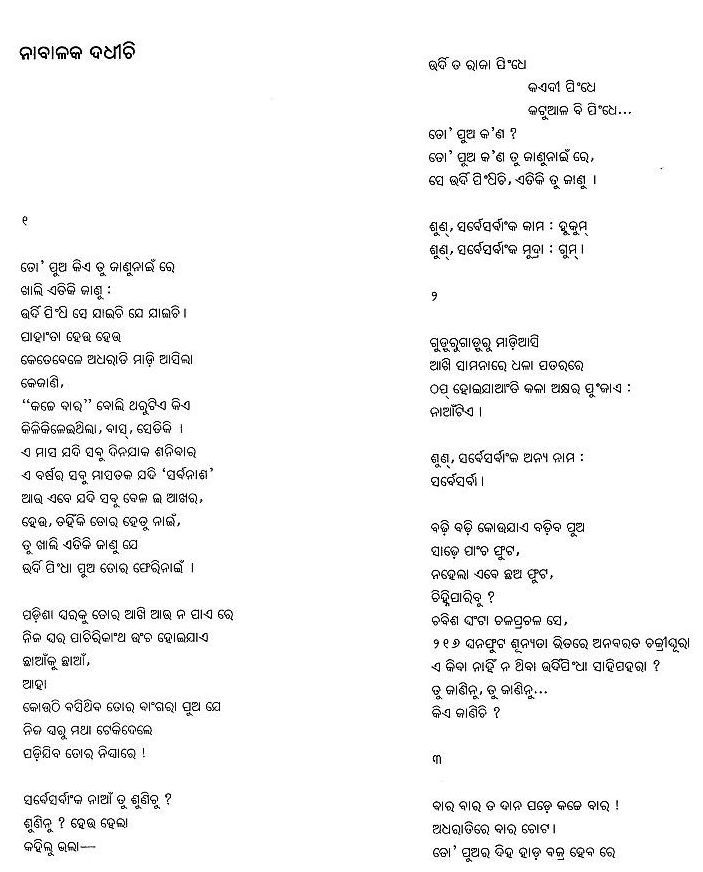 ନାବାଳକ ଦଧୀଚି
୧
ତୋ’ ପୁଅ କିଏ ତୁ ଜାଣୁନାଇଁ ରେ
ଖାଲି ଏତିକି ଜାଣୁ :
ଉର୍ଦି ପିଂଧି ସେ ଯାଇଚି ଯେ ଯାଇଚି ।
ପାହାଂତା ହେଉ ହେଉ
କେତେବେଳେ ଅଧରାତି ମାଡ଼ି ଆସିଲା
କେଜାଣି,
“କଚ୍ଚେ ବାର” ବୋଲି ଥରୁଟିଏ କିଏ
କିଳିକିଳେଇଥିଲା, ବାସ୍, ସେତିକି ।
ଏ ମାସ ଯଦି ସବୁ ଦିନଯାକ ଶନିବାର
ଏ ବର୍ଷର ସବୁ ମାସତକ ଯଦି ‘ସର୍ବନାଶ’
ଆଉ ଏବେ ଯଦି ସବୁ ବେଳ ଇ ଆଖର,
ହେଉ, ତହିଁକି ତୋର ହେତୁ ନାଇଁ,
ତୁ ଖାଲି ଏତିକି ଜାଣୁ ଯେ
ଉର୍ଦି ପିଂଧା ପୁଅ ତୋର ଫେରିନାଇଁ ।
ପଡ଼ିଶା ଘରକୁ ତୋର ଆଖି ଆଉ ନ ପାଏ ରେ
ନିଜ ଘର ପାଚିରିକାଂଥ ଉଂଚ ହୋଇଯାଏ
ଛାଆଁକୁ ଛାଆଁ,
ଆହା
କୋଉଠି ବସିଥିବ ତୋର ବାଂଗରା ପୁଅ ଯେ
ନିଜ ଘରୁ ମଥା ଟେକିଦେଲେ
ପଡ଼ିଯିବ ତୋର ନିଘାରେ !
ସର୍ବେସର୍ବାଂକ ନାଆଁ ତୁ ଶୁଣିଚୁ ?
ଶୁଣିନୁ ? ହେଉ ହେଲା
କହିଲୁ ଭଲା—
ଉର୍ଦି ତ ରାଜା ପିଂଧେ
କଏଦୀ ପିଂଧେ
କଟୁଆଳ ବି ପିଂଧେ...
ତୋ’ ପୁଅ କ’ଣ ?
ତୋ’ ପୁଅ କ’ଣ ତୁ ଜାଣୁନାଇଁ ରେ,
ସେ ଉର୍ଦି ପିଂଧିଚି, ଏତିକି ତୁ ଜାଣୁ ।
ଶୁଣ୍, ସର୍ବେସର୍ବାଂକ କାମ : ହୁକୁମ୍
ଶୁଣ୍, ସର୍ବେସର୍ବାଂକ ମୁଦ୍ରା : ଗୁମ୍ ।
୨
ଗୁଡୁରୁଗାଡୁରୁ ମାଡ଼ିଆସି
ଆଖି ସାମନାରେ ଧଳା ପତରରେ
ଠପ୍ ହୋଇଯାଆଂତି କଳା ଅକ୍ଷର ପୁଂଜାଏ :
ନାଆଁଟିଏ ।
ଶୁଣ୍, ସର୍ବେସର୍ବାଂକ ଅନ୍ୟ ନାମ :
ସର୍ବେସର୍ବା ।
ବଢ଼ି ବଢ଼ି କୋଉଯାଏ ବଢ଼ିବ ପୁଅ
ସାଢ଼େ ପାଂଚ ଫୁଟ,
ନହେଲା ଏବେ ଛଅ ଫୁଟ,
ଚିହ୍ନିପାରିବୁ ?
ଚବିଶ ଘଂଟା ଚଳପ୍ରଚଳ ସେ,
୨୧୬ ଘନଫୁଟ ଶୂନ୍ୟତା ଭିତରେ ଅନବରତ ଚକ୍ରୀଘୂରା
ଏ କିବା ନାହିଁ ନ ଥିବା ଉର୍ଦିପିଂଧା ସାହିପହରା ?
ତୁ ଜାଣିନୁ, ତୁ ଜାଣିନୁ...
କିଏ ଜାଣିଚି ?
୩
ବାର ବାର ତ ଦାନ ପଡ଼େ କଚ୍ଚେ ବାର !
ଅଧରାତିରେ ବାର ଚୋଟ ।
ତୋ’ ପୁଅର ଦିହ ହାଡ଼ ବଜ୍ର ହେବ ରେ